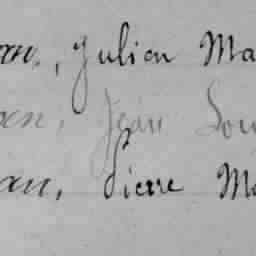 an, Julien Ma
an, Jean Lou
an, Pierre Ma